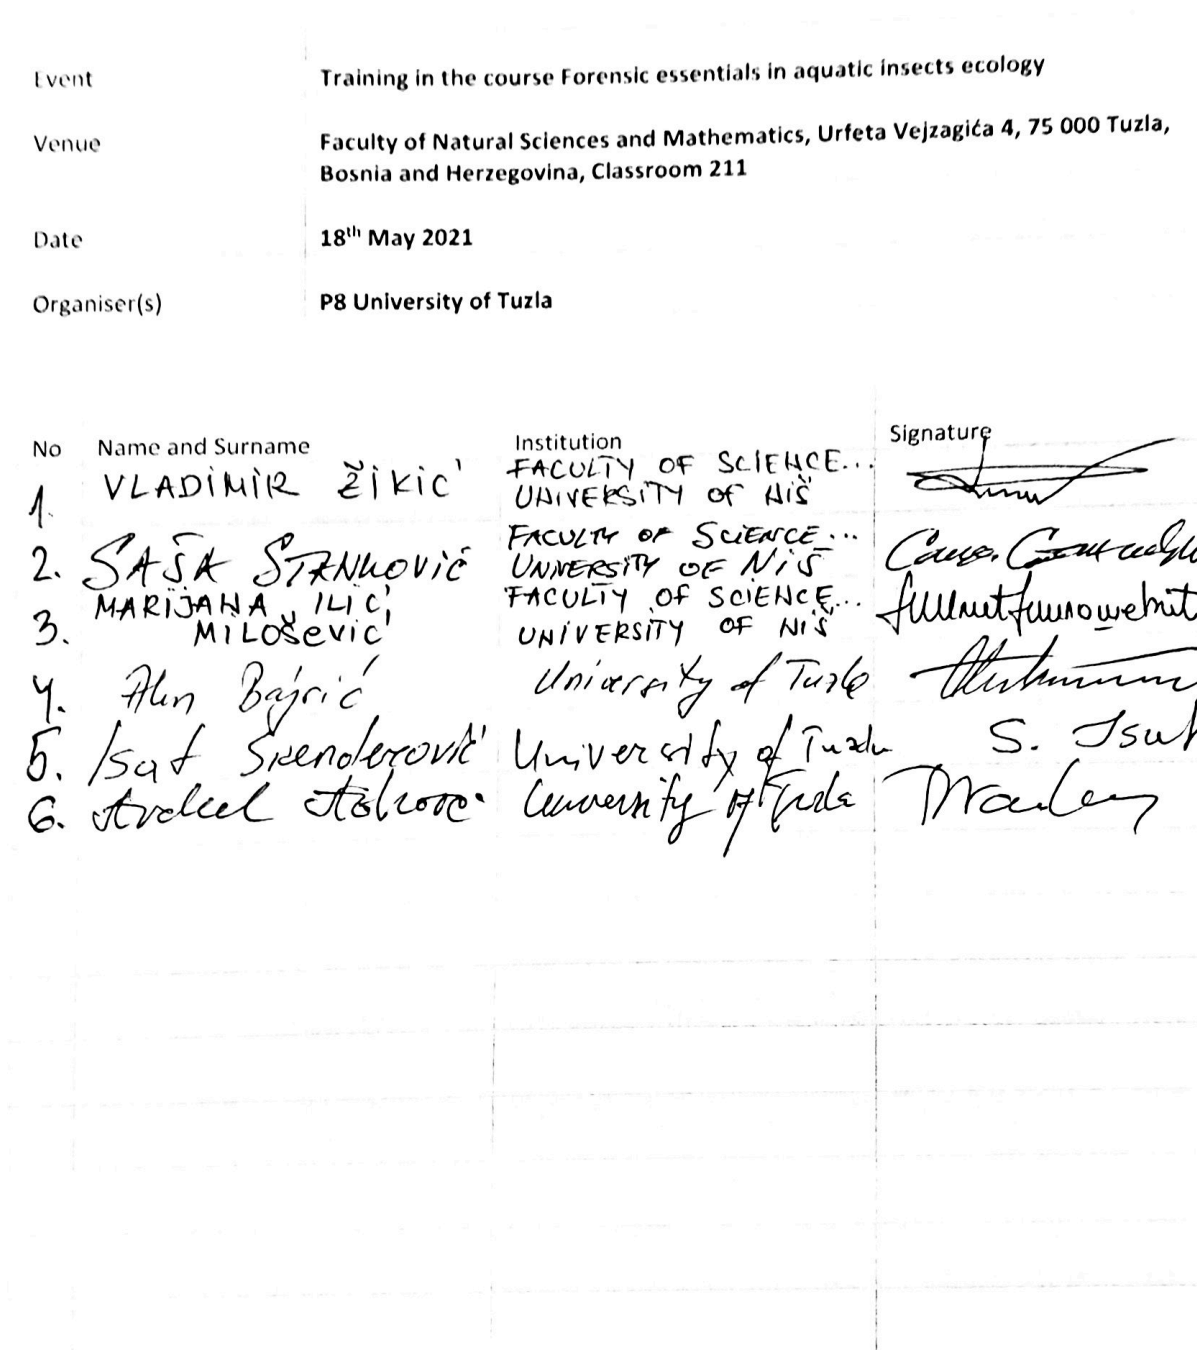 Event Training in the course Forensic essentials in aquatic insects ecology
Venue Faculty of Natural Sciences and Mathematics, Urfeta Vejzagića 4, 75 000 Tuzla,
Bosnia and Herzegovina, Classroom 211
Date 18th May 2021
Organiser(s) P8 University of Tuzla
No Name and Surname Institution Signature
1. VLADIMIR ŽIKIĆ FACULTY OF SCIENCE...
UNIVERSITY OF NIŠ
2. SAŠA STANKOVIĆ FACULTY OF SCIENCE...
UNIVERSITY OF NIŠ
3. MARIJANA ILIĆ FACULTY OF SCIENCE...
MILOŠEVIĆ UNIVERSITY OF NIŠ
4. Bajrić University of Tuzla
5. Isat Skenderović University of Tuzla S. Isat
6. University of Tuzla